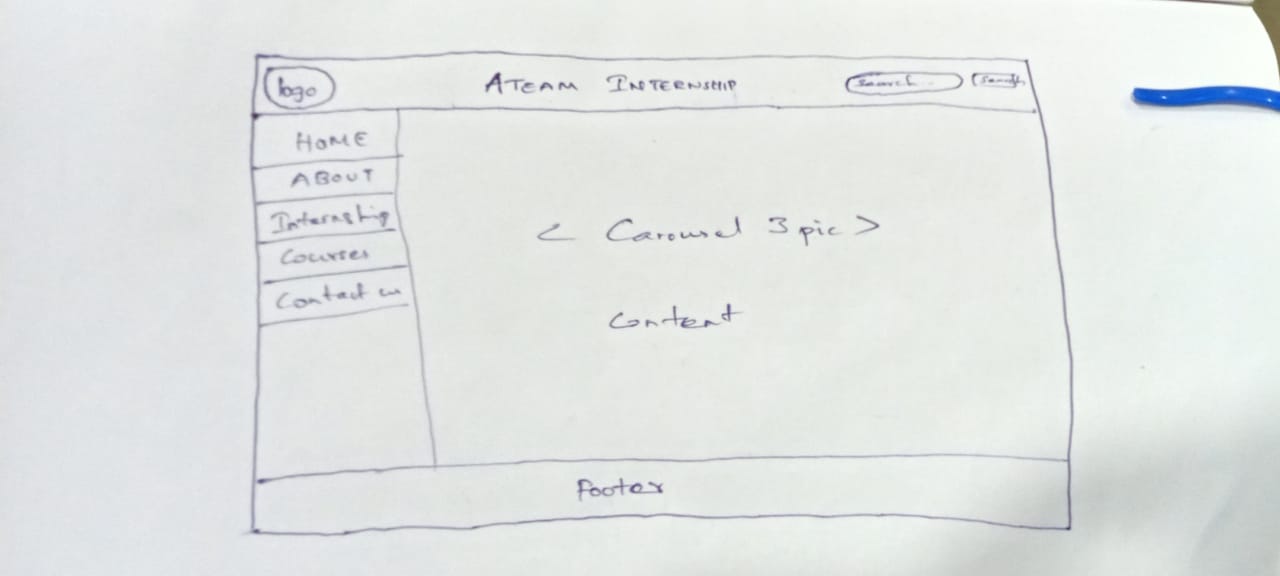 logo ATEAM INTERNSHIP Search.. Search
HOME
ABOUT
Internship
Courses
Contact us
< Carousel 3 pic >
Content
Footer